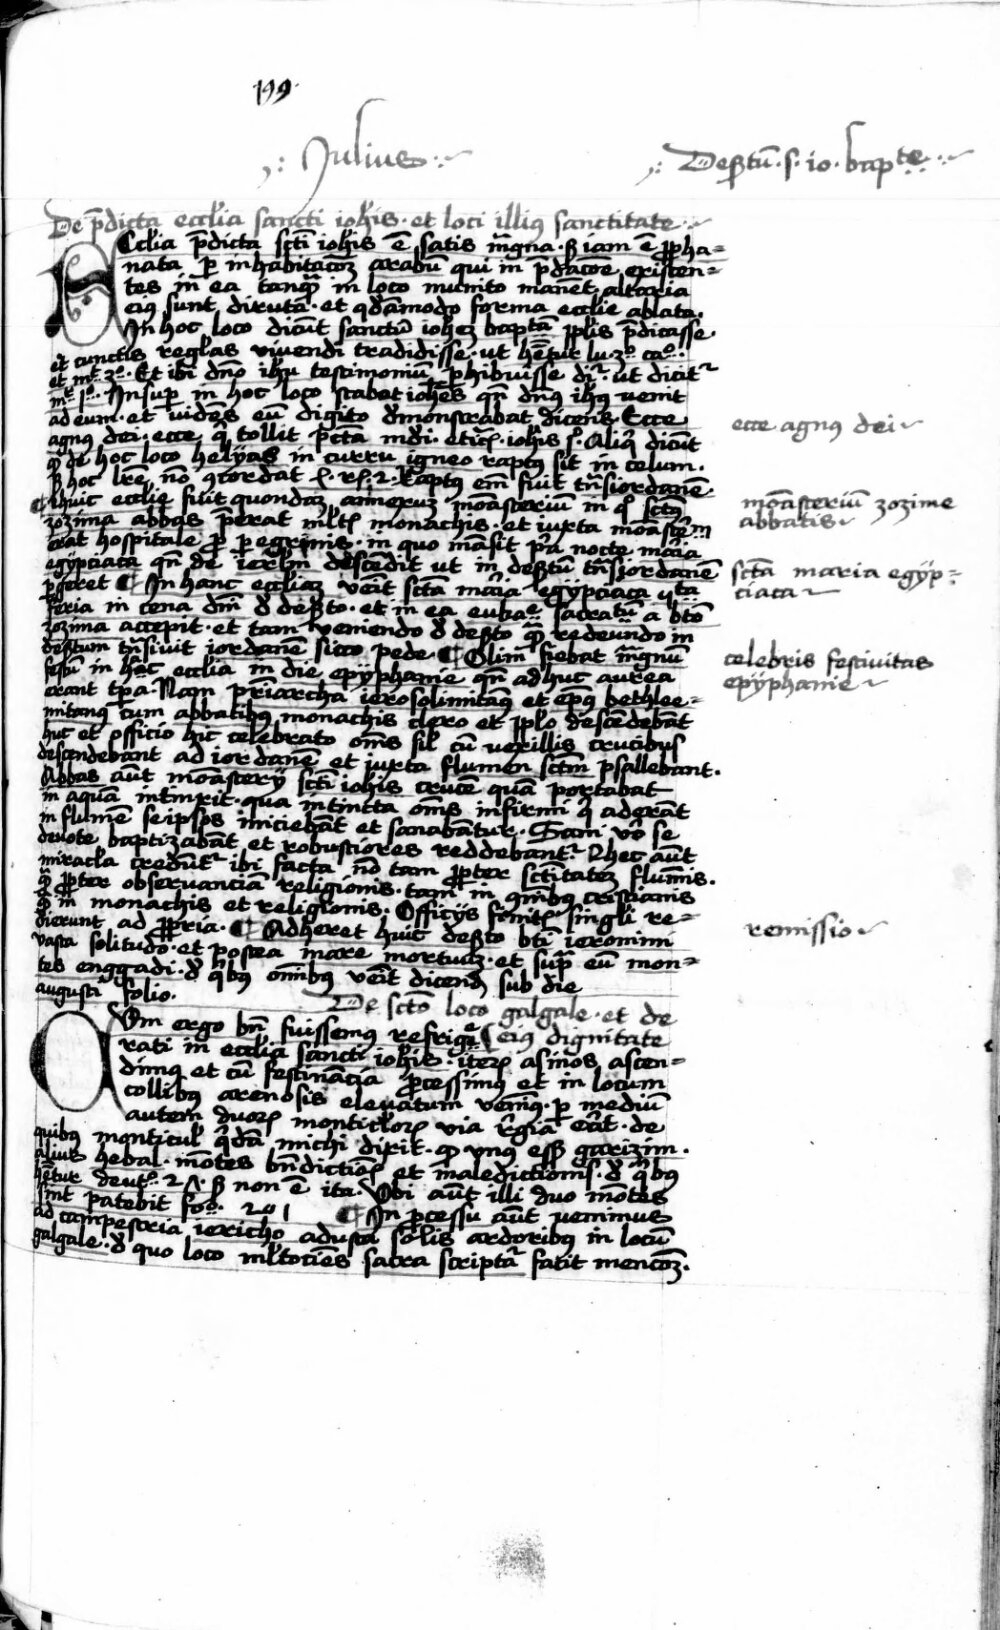 199.
Julius
Desertū · s · io · bapte
De p̄dicta eccl̄ia sancti ioh̄is · et loci illiꝰ sanctitate
Eccl̄ia p̄dicta scti ioh̄is ē satis magna · s iam ē ꝓpha=
nata ꝑ inhabitacōꝫ arabū qui in p̄dacōe existen=
tes in ea tanꝙ̄ in loco munito manēt altaria
eiꝰ sunt diruta · et qdāmodo forma ecclie ablata.
In hoc loco dicūt sanctū ioh̄eꝫ baptā ppl̄is p̄dicasse ·
et cunctis regl̄as vivendi tradidisse · ut hētur lu · 3º · ca° ·
et mt 3º · Et ibi dn̄o ih̄u testimoniū ꝑhibuisse dr̄ · ut dicit᷑
Insuꝑ in hoc loco stabat ioh̄es qn̄ dn̄s ih̄us venit
ad eum · et vidēs eū digito demonstrabat dicens · Ecce
agnꝰ dei · ecce q̄ tollit pctā mdi · Aliq̄ dicūt
ꝙ de hoc loco helyas in curru igneo raptꝰ sit in celum.
s hoc lr̄e nō ꝯcordat · Raptꝰ em̄ fuit tn̄siordanē ·
¶ Huic ecclie fuit quondā annexuꝫ monasteriuꝫ in q° sctꝰ
zozima abbas p̄erat ml̄tis monachis · et iuxta monaster̄m
erat hospitale ꝓ ꝑegrinis · in quo māsit p̄a nocte maria
egypciaca qn̄ de ier̄lm̄ descēdit ut in desertū tn̄siordanē
ꝑgeret ¶ In hanc eccliaꝫ veīt sctā maria egypciaca qᵃtᵃ
feria in cena dn̄i d deserto · et in ea eukae sacratū a btō
zozima accepit · et tam veniendo d deserto ꝙ̄ redeundo in
desertum tn̄sivit iordanē sicco pede · ¶ Olim fiebat magnū
festū in hac ecclia in die epyphanie qn̄ adhuc aurea
erant tpa · Nam pr̄iarcha ierosolimitanꝰ et epꝰ bethlee=
mitanꝰ cum abbatibꝰ monachis clero et pplo descēdebāt
huc et officio hic celebrato om̄s sil̄ cū vexillis crucibus
descendebant ad iordanē et iuxta flumen sctm psallebant.
Abbas aūt monasterij scti ioh̄is crucē quā portabat
in aquā intinxit · qua intincta om̄s infirmi q̄ aderāt
in flumē seipsos iniciebāt et sanabātur · Sani vº se
devote baptizabāt et robustiores reddebant᷑ · hec aūt
miracl̄a credūt᷑ ibi facta nō tam ꝓpter sctitateꝫ flumis.
ꝙ̄ ꝓpter observanciā religionis · tam in omibus cristianis
ꝙ̄ in monachis et religionis · Officijs finitis singl̄i re=
dierunt ad ꝓpria · ¶ Adheret huic deserto bti ieronimi
vasta solitudo · et postea mare mortuuꝫ · et supra eū mon=
tes enggadi · d q̄bꝰ om̄ibꝰ veīt dicendū sub die
augusti folio.
De scto loco galgale · et de
eiꝰ dignitate
Cum ergo bn̄ fuissemus refrige
rati in ecclia sancti ioh̄is · iterꝫ asinos ascen=
dimꝰ et cū festinācia ꝓcessimus et in locum
collibꝰ arenosis elevatum venimꝰ · ꝑ mediū
autem duorꝫ monticl̄orꝫ via r̄gia erāt · de
quibus monticul̄ q̄dā michi dixit · ꝙ vnꝰ esset garizim ·
alius hebal · mōtes bn̄dictiōis et maledictionis · d q̄bꝰ
hētur deut · 27 · s non ē ita · Vbi aūt illi duo mōtes
sint patebit fo · 201 ¶ In ꝓcessu aūt venimus
ad campestria iericho adusta solis ardoribꝰ in locū
galgale · d quo loco ml̄tociēs sacra scriptᵃ facit mencōꝫ.
ecce agnus dei
monāsteriū zozime
abbatis
sctā maria egyp=
ciaca
celebris festivitas
epyphanie
remissio